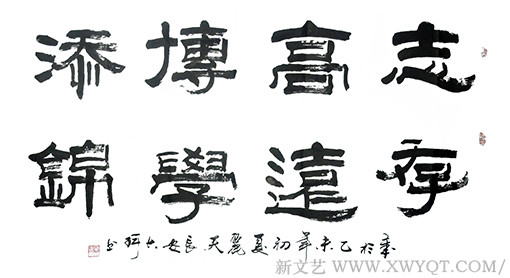 志存
高遠
博學
添錦
於乙未年初夏麗天長安书
新文艺 WWW.XWYQT.COM/